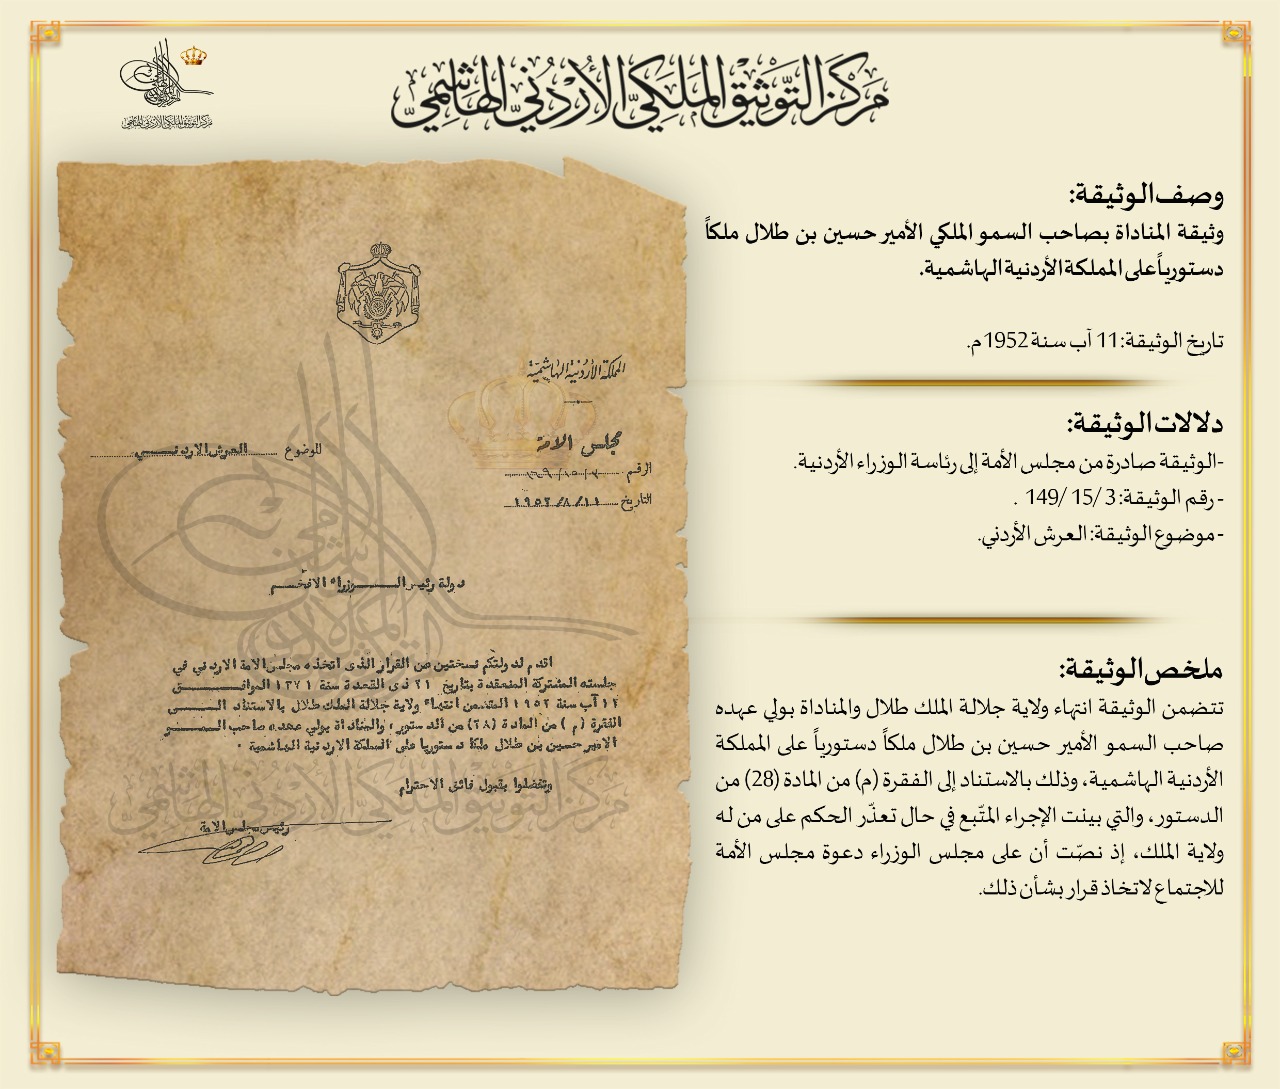 مركز التوثيق الملكي الأردني الهاشمي
مركز التوثيق الملكي الأردني الهاشمي
وصف الوثيقة:
وثيقة المناداة بصاحب السمو الملكي الأمير حسين بن طلال ملكاً
دستورياً على المملكة الأردنية الهاشمية.
تاريخ الوثيقة: 11 آب سنة 1952م.
دلالات الوثيقة:
-الوثيقة صادرة من مجلس الأمة إلى رئاسة الوزراء الأردنية.
- رقم الوثيقة: 3/ 15/ 149 .
- موضوع الوثيقة: العرش الأردني.
ملخص الوثيقة:
تتضمن الوثيقة انتهاء ولاية جلالة الملك طلال والمناداة بولي عهده
صاحب السمو الأمير حسين بن طلال ملكاً دستورياً على المملكة
الأردنية الهاشمية، وذلك بالاستناد إلى الفقرة (م) من المادة (28) من
الدستور، والتي بينت الإجراء المتّبع في حال تعذّر الحكم على من له
ولاية الملك، إذ نصّت أن على مجلس الوزراء دعوة مجلس الأمة
للاجتماع لاتخاذ قرار بشأن ذلك.
المملكة الأردنية الهاشمية
مجلس الامة
الموضوع العرش الاردنـــي
الرقم
التاريخ ١٩٥٢/٨/١١
دولة رئيس الـــوزراء الافخـــم
اقدم لدولتكم نسختين من القرار الذى اتخذه مجلس الامة الاردني في
جلسته المشتركة المنعقدة بتاريخ ٢١ ذى القعدة سنة ١٣٧١ الموافـــق
١١ آب سنة ١٩٥٢ المتضمن انتهاء ولاية جلالة الملك طلال بالاستناد الـــى
الفقرة (م) من المادة (٢٨) من الدستور، والمناداة بولي عهده صاحب السمـــو
الامير حسين بن طلال ملكا دستوريا على المملكة الاردنية الهاشمية .
وتفضلوا بقبول فائق الاحترام
رئيس مجلس الامة
مركز التوثيق الملكي الأردني الهاشمي